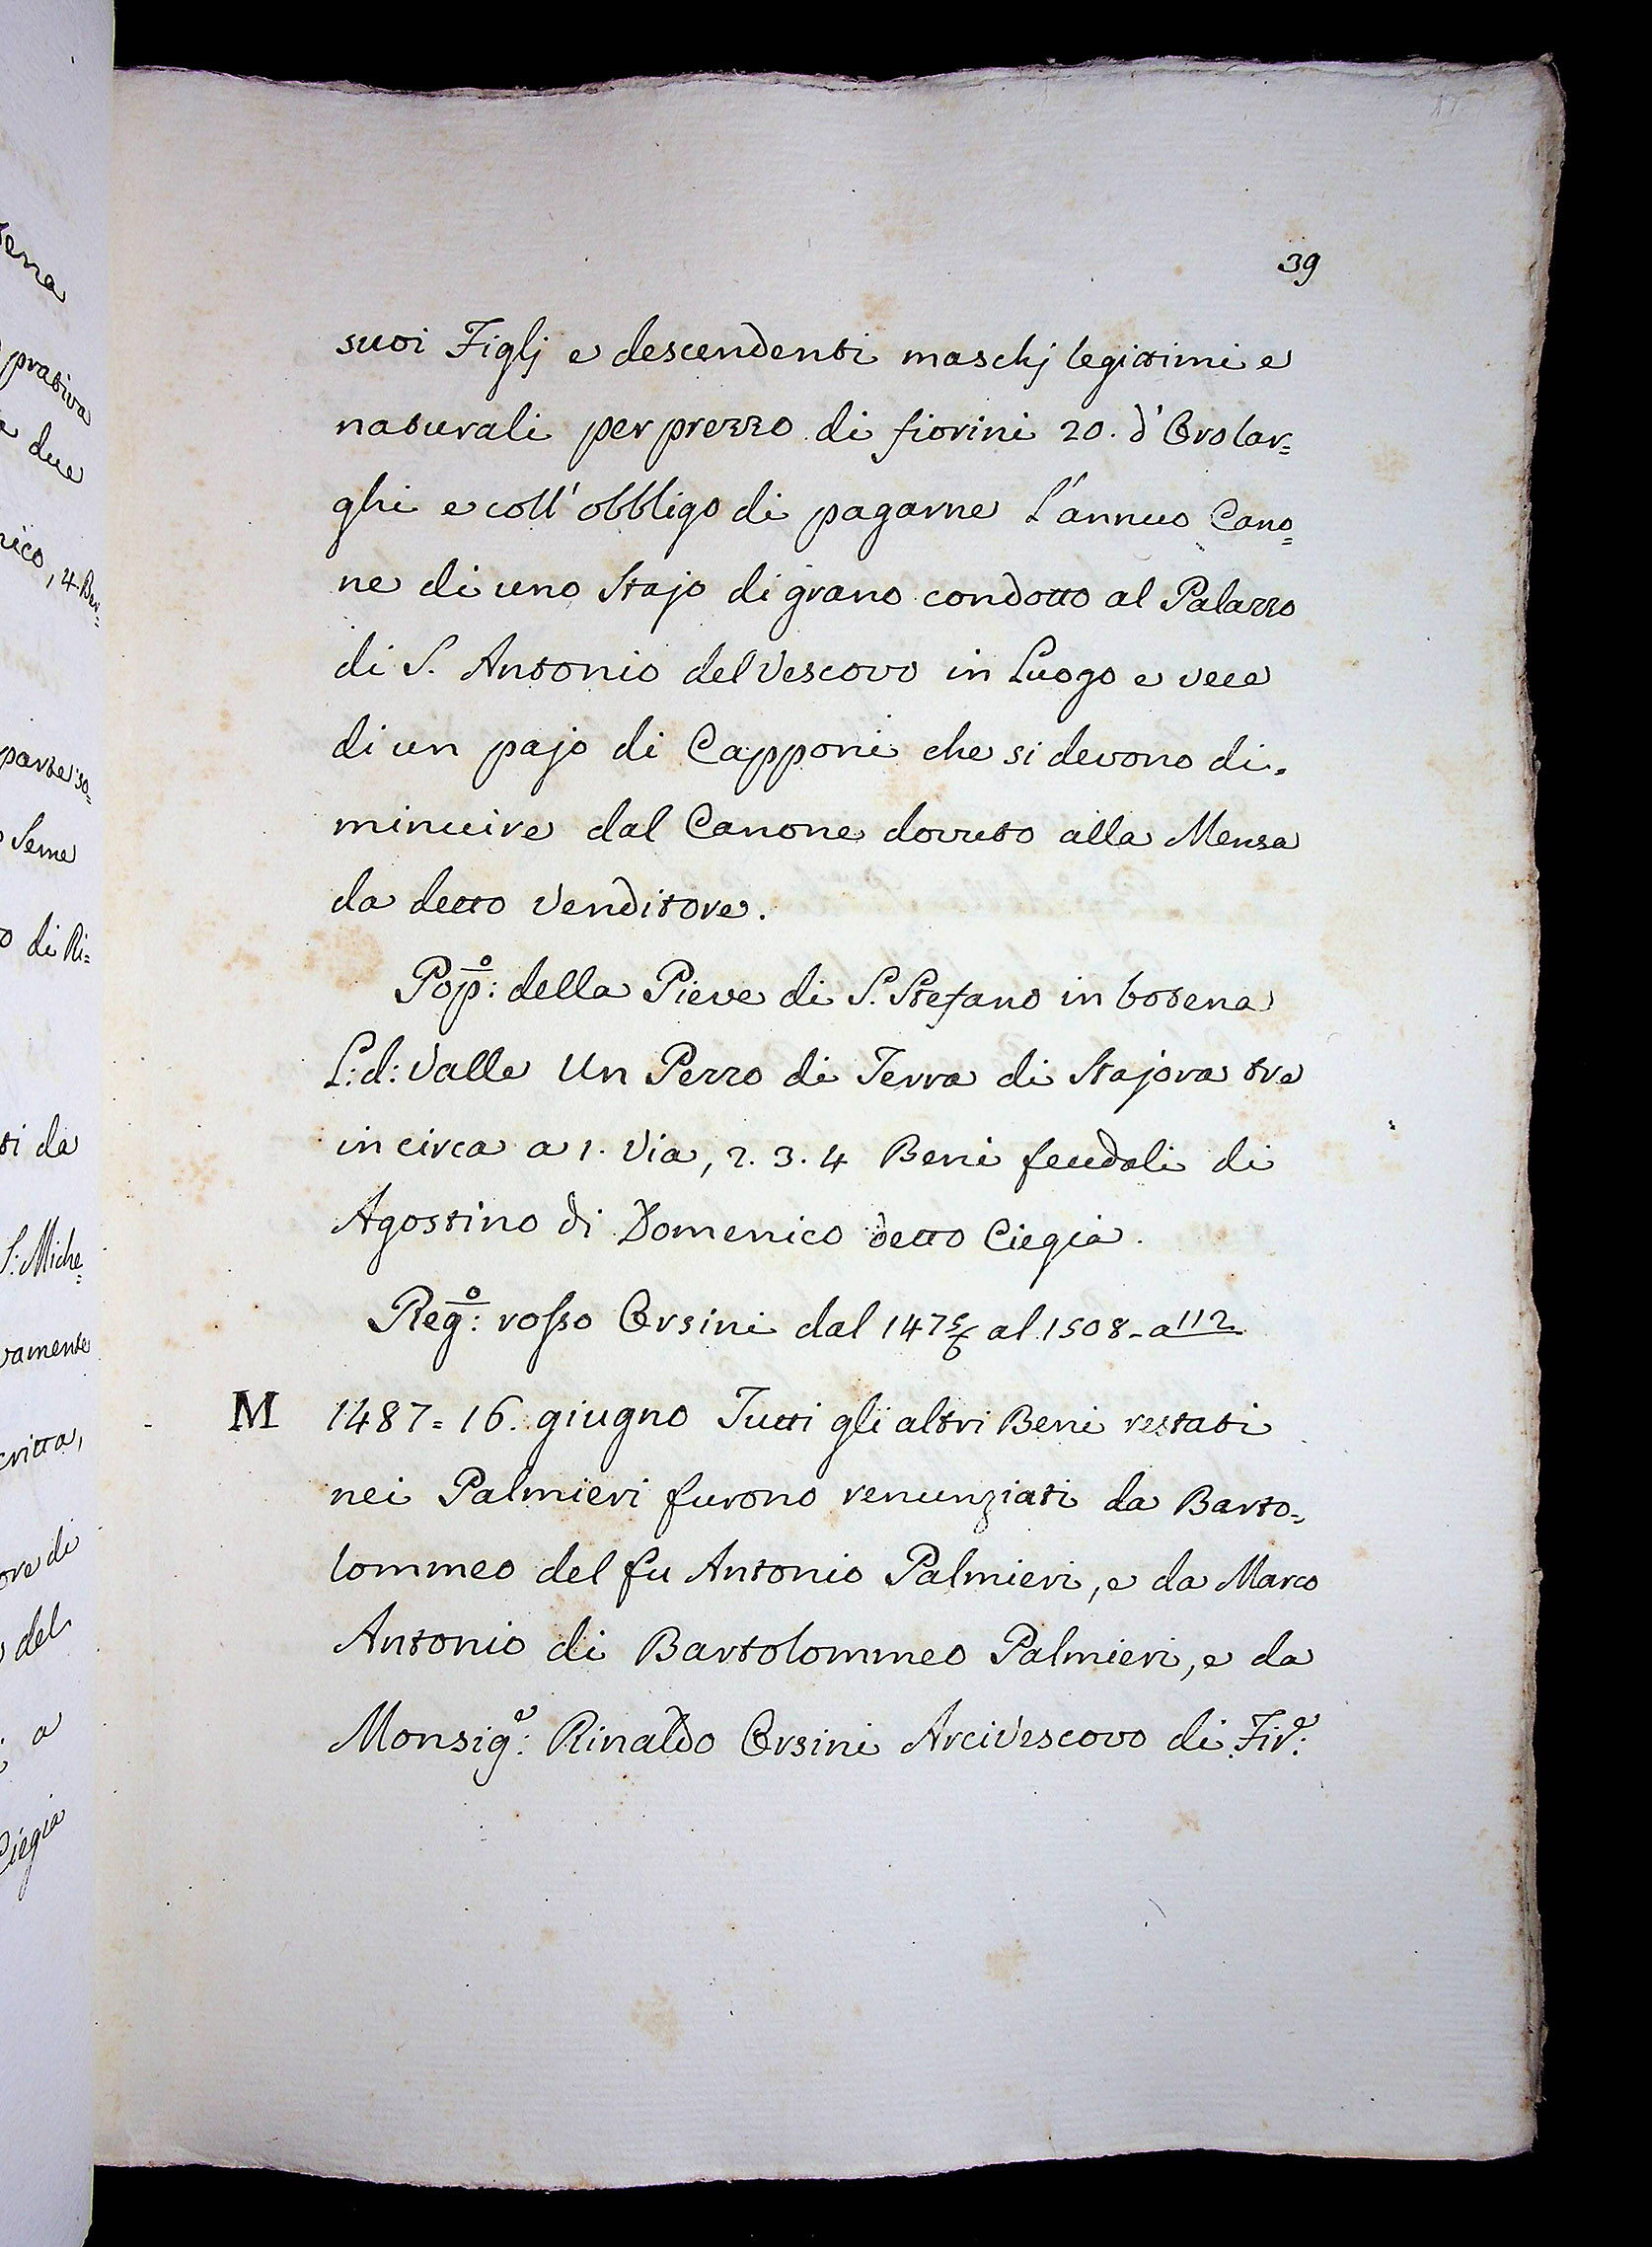 39
suoi Figlj e descendenti maschj legittimi e
naturali per prezzo di fiorini 20. d'Oro lar=
ghi e coll'obbligo di pagarne L'annuo Cano=
ne di uno Stajo di grano condotto al Palazzo
di S. Antonio del Vescovo in Luogo e vece
di un pajo di Capponi che si devono di=
minuire dal Canone dovuto alla Mensa
da detto Venditore.
Pop:º della Pieve di S. Stefano in botena
L: d: Valle Un Pezzo di Terra di Stajora tre
in circa a 1. Via, 2. 3. 4 Beni feudali di
Agostino di Domenico detto Ciegia.
Reg:º rosso Orsini dal 1475/6 al 1508 - a 112
M 1487 = 16. giugno Tutti gli altri Beni restati
nei Palmieri furono renunziati da Barto=
lommeo del fu Antonio Palmieri, e da Marco
Antonio di Bartolommeo Palmieri, e da
Monsig:e Rinaldo Orsini Arcivescovo di Fir:e
prativa
due
nico, 4. Ben=
parte so=
Seme
di Ri=
ti da
S: Miche=
vamente
critta,
ore di
del
a
Ciegia